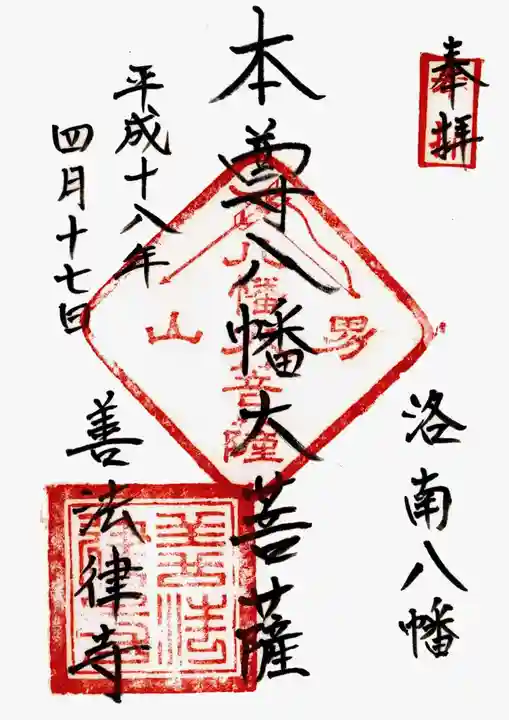 奉拝
洛南八幡
本尊八幡大菩薩
平成十八年
四月十七日
善法律寺
男山
八幡大菩薩